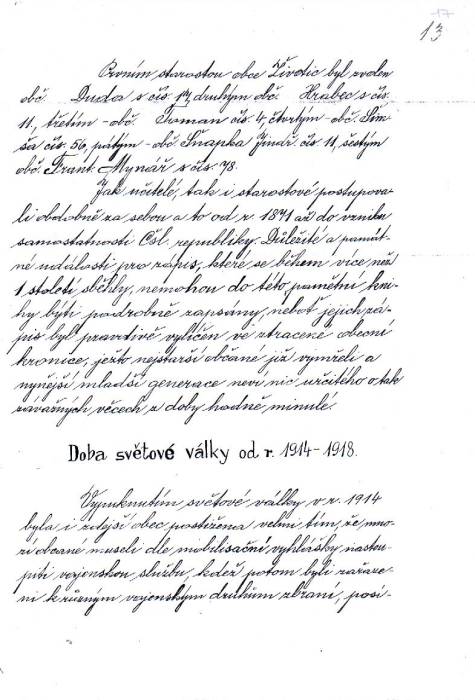 17
13
Prvním starostou obce Životic byl zvolen
obč. Duda s čís. 17, druhým obč. Hrabec s čís.
11, třetím - obč. Toman čís. 4, čtvrtým - obč. Šim-
sa čís. 56, pátým - obč. Šnapka Jinář. čís. 11, šestým
obč. Frant. Mynář s čís. 78.
Jak učitelé, tak i starostové postupova-
li obdobně za sebou a to od r. 1871 až do vzniku
samostatnosti Čsl. republiky. Důležité a památ-
né události pro zápis, které se během více než
1 století sběhly, nemohou do této pamětní kni-
hy býti podrobně zapsány, neboť jejich zá-
pis byl pravdivě vylíčen ve ztracené obecní
kronice, ježto nejstarší občané již vymřeli a
nynější mladší generace neví nic určitého o tak
závažných věcech z doby hodně minulé.
Doba světové války od r. 1914-1918.
Vypuknutím světové války v r. 1914
byla i zdejší obec postižena velmi tím, že mno-
zí občané museli dle mobilisační vyhlášky nastou-
piti vojenskou službu, kdež potom byli zařaze-
ni k různým vojenským druhům zbraní, posí-